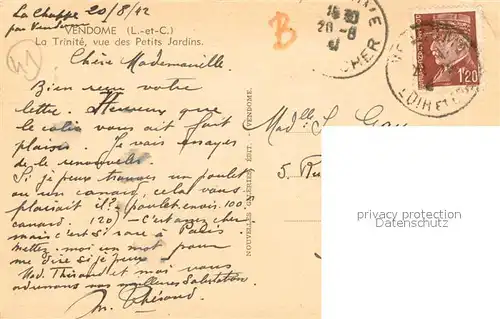 La Chappe 20/8/42
par Vendome
VENDOME (L.-et-C.)
La Trinité, vue des Petits Jardins.
B
41
Chère Mademoiselle.
Bien reçu votre
lettre. Heureux que
le colis vous ait fait
plaisir. Je vais essayer
de le renouveler
Si je peux trouver un poulet
ou un canard, cela vous
plairait il? poulet env. 100
canard. 120) - C'est assez cher
mais c'est si rare à Paris
Mettez-moi un mot pour
me dire si je peux -
Mad. Théraud et moi vous
adressons nos meilleures Salutations
M. Théraud
NOUVELLES GALERIES ÉDIT. - VENDOME.
Madlle S.
5. Ru
CHER
LOIR ET CHER
1F20
property protection
www.profv.de